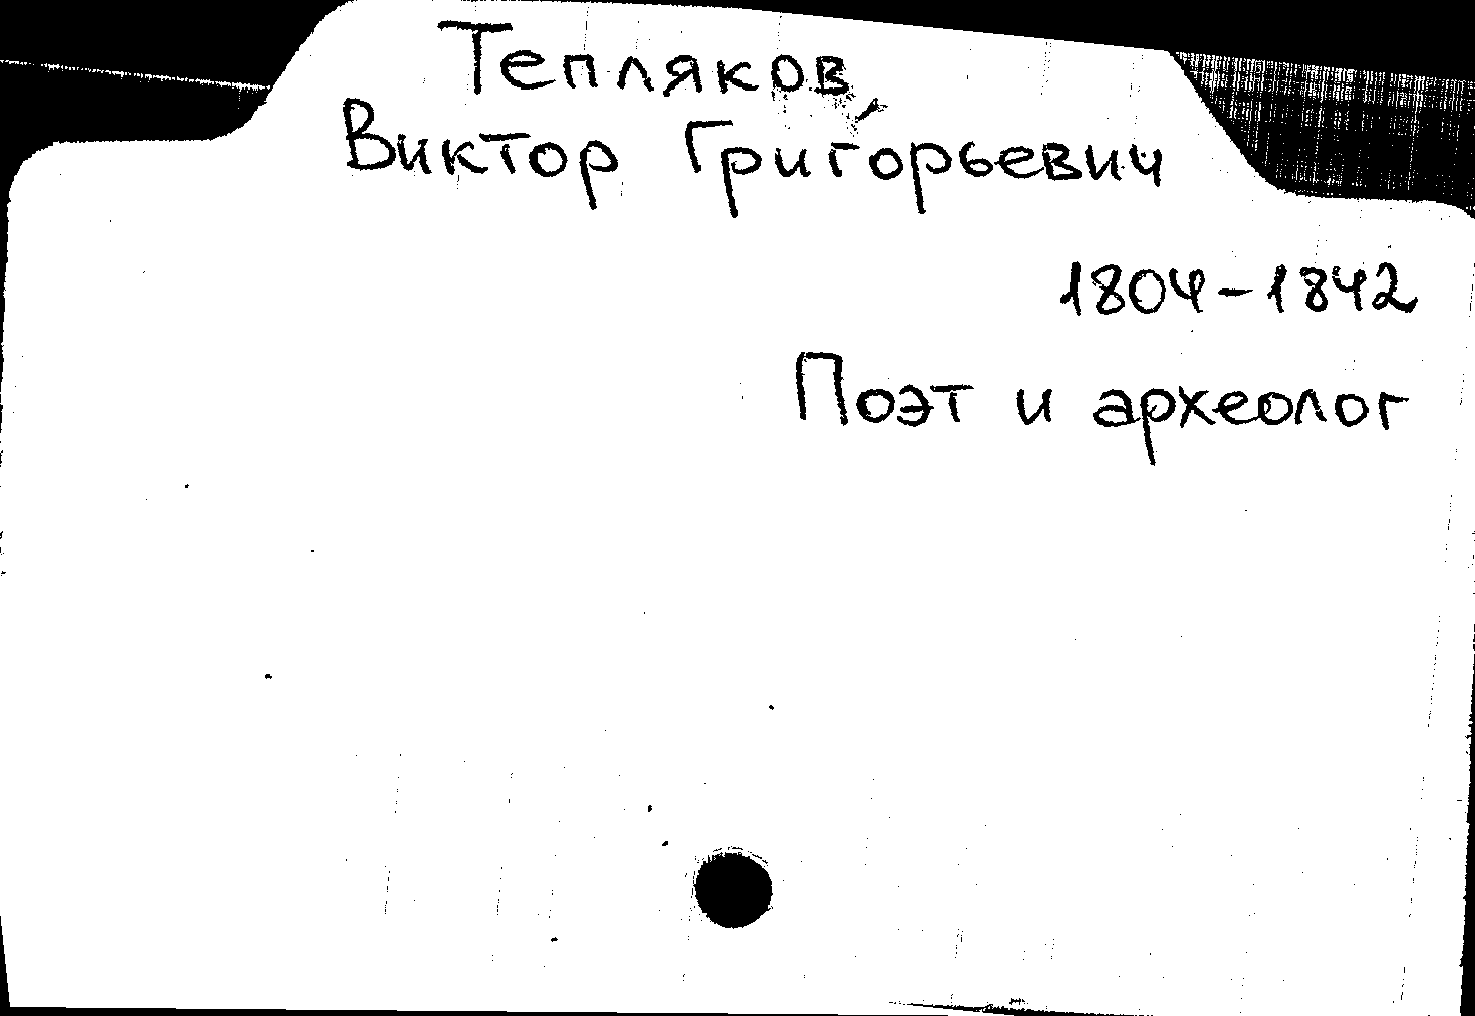 Тепляков
Виктор Григорьевич
1804-1842
Поэт и археолог